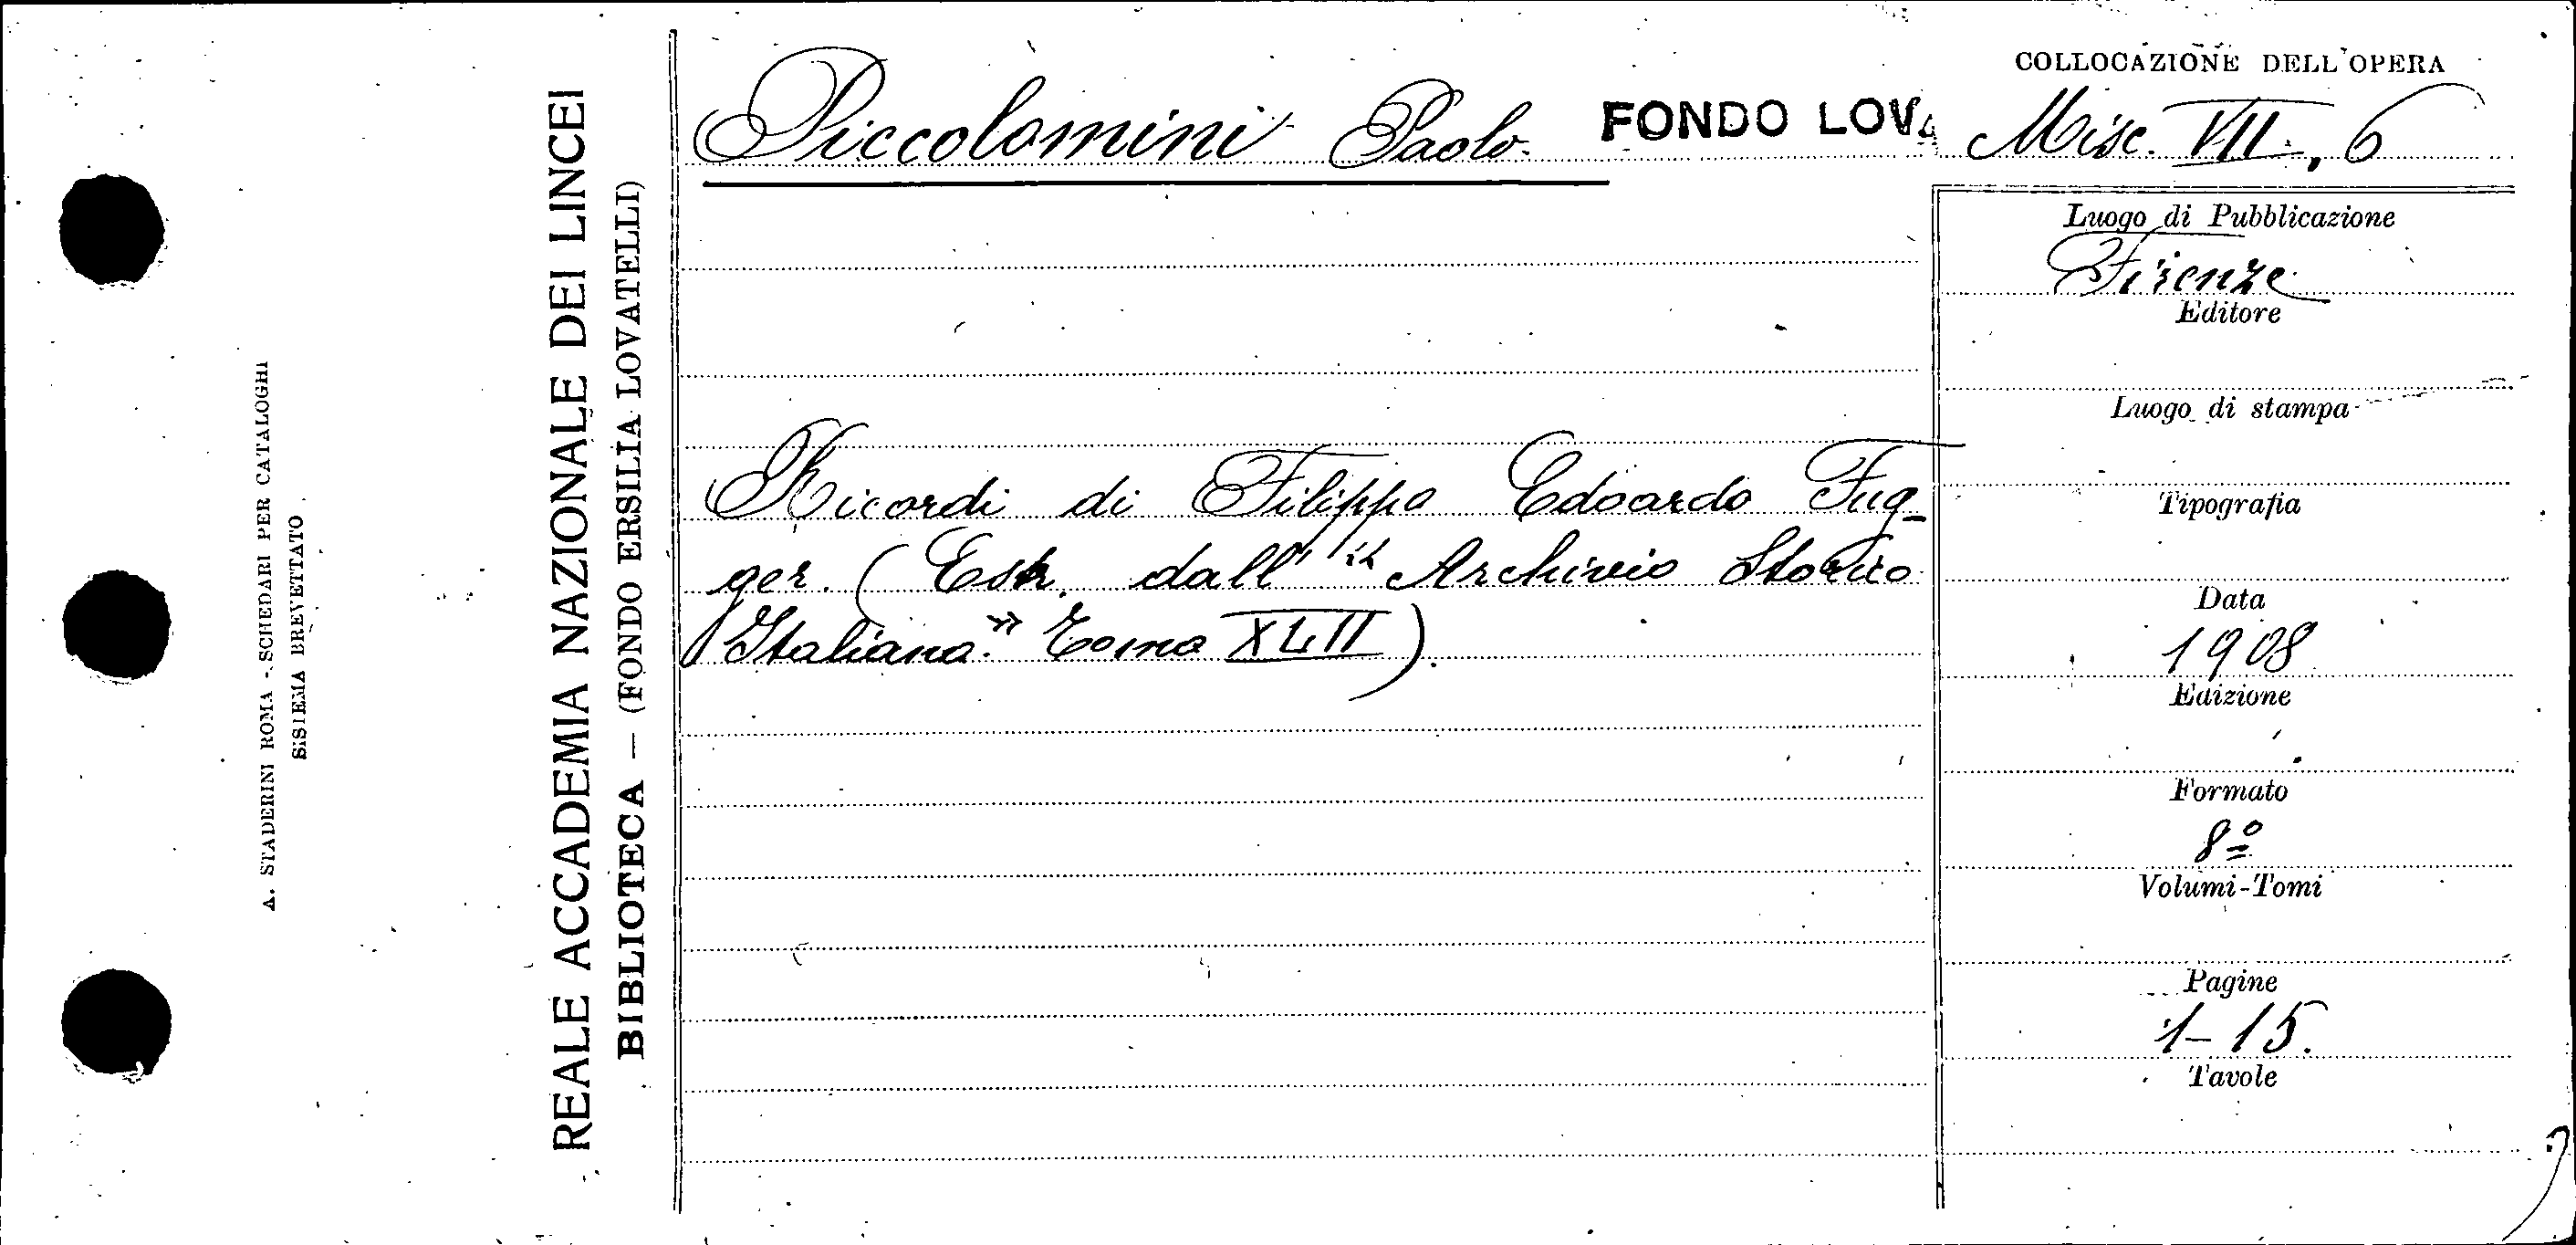 A. STADERINI ROMA - SCHEDARI PER CATALOGHI
SISTEMA BREVETTATO
REALE ACCADEMIA NAZIONALE DEI LINCEI
BIBLIOTECA — (FONDO ERSILIA LOVATELLI)
Piccolomini Paolo
FONDO LOVA
COLLOCAZIONE DELL'OPERA
Misc. VII, 6
Ricordi di Filippo Edoardo Fug-
ger. (Estr. dall' "Archivio Storico
Italiano." Tomo XLII).
Luogo di Pubblicazione
Firenze
Editore
Luogo di stampa
Tipografia
Data
1908
Edizione
Formato
8º
Volumi-Tomi
Pagine
1-15.
Tavole